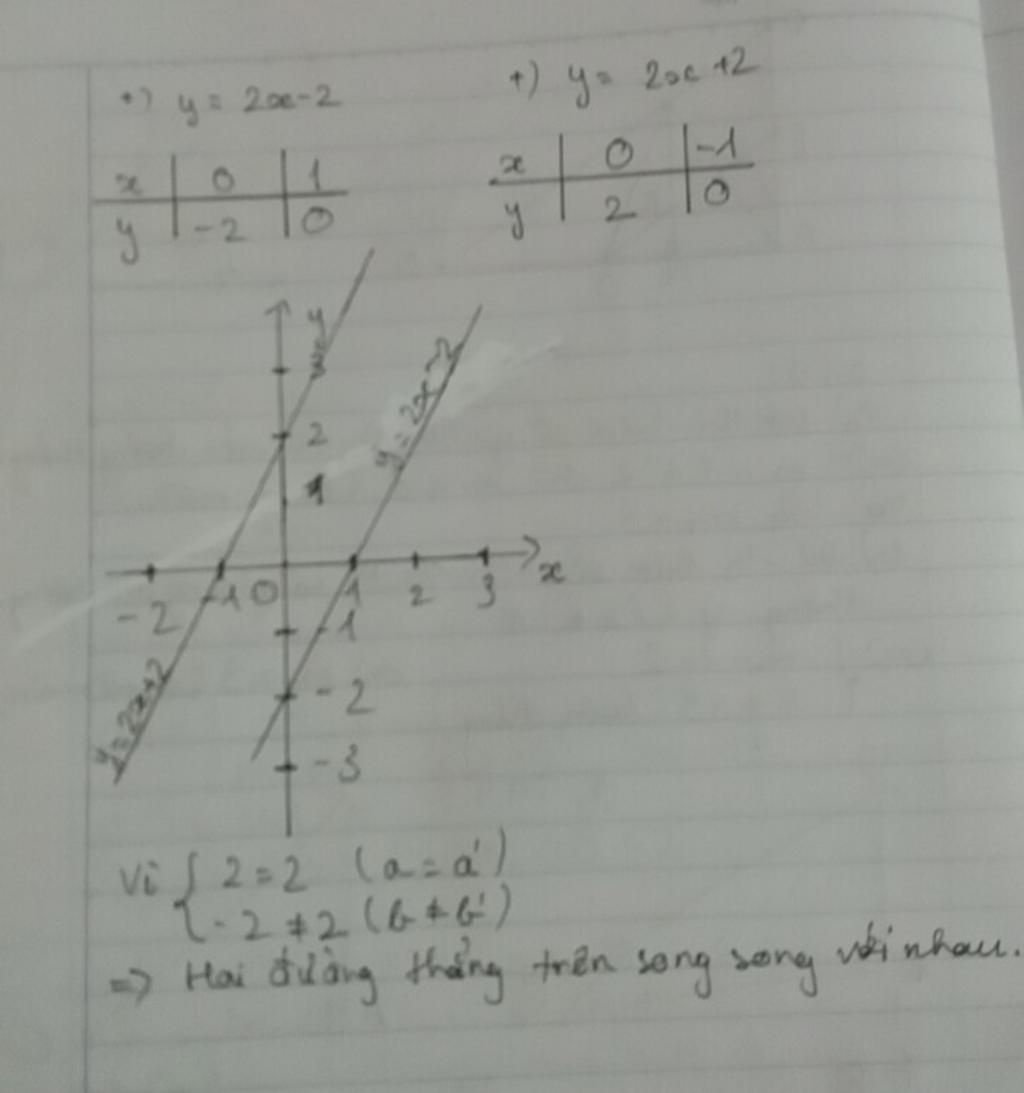 +) y = 2x - 2
x | 0 | 1
y | -2 | 0
+) y = 2x + 2
x | 0 | -1
y | 2 | 0
y
3
2
1
y = 2x - 2
-2 -1 0 1 2 3 x
-1
-2
-3
y = 2x + 2
Vì { 2 = 2 (a = a')
-2 ≠ 2 (b ≠ b')
=> Hai đường thẳng trên song song với nhau.